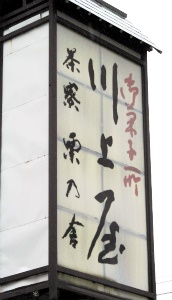 御菓子所
川上屋
茶寮 栗乃舎